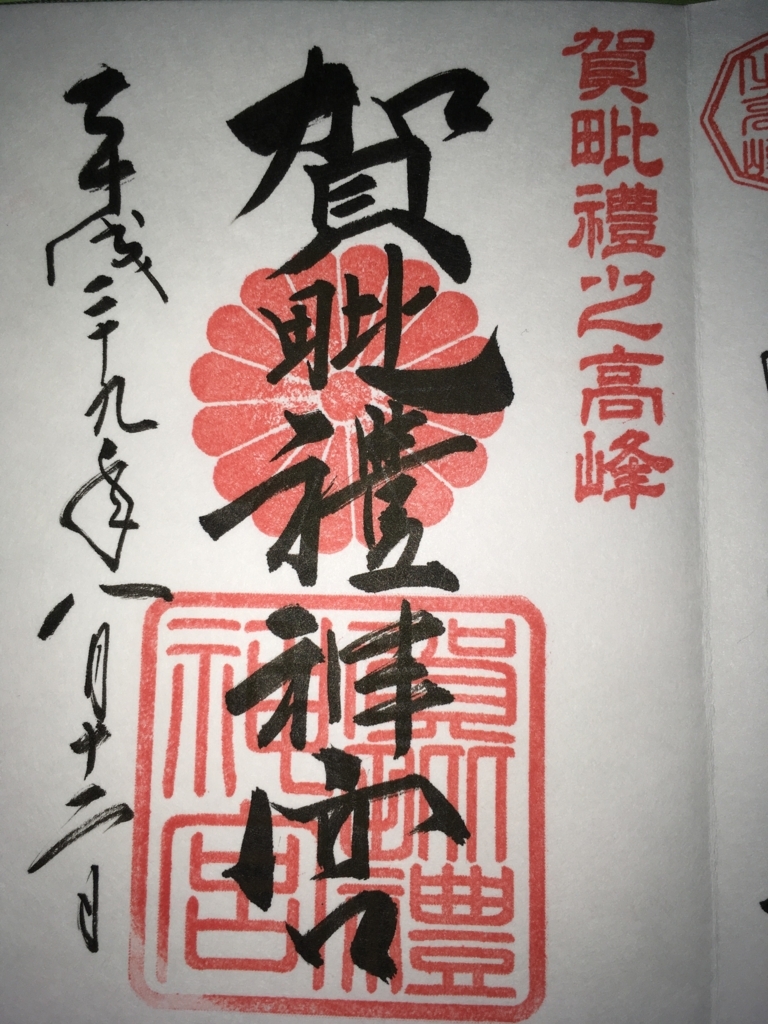 賀毗禮之高峰
賀毗禮神宮
賀毗禮
神宮
平成二十九年八月十二日